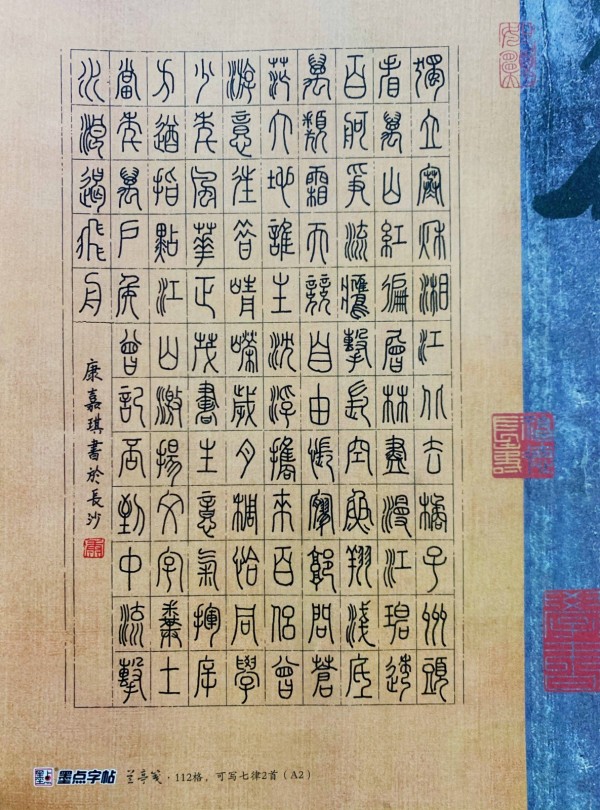 獨立寒秋湘江北去橘子州頭
看萬山紅徧層林盡漫江碧透
百舸爭流鷹擊長空魚翔淺底
萬類霜天競自由悵寥廓問蒼
茫大地誰主沈浮攜來百侶曾
游意往昔崢嶸歲月稠恰同學
少年風華正茂書生意氣揮斥
方遒指點江山激揚文字糞土
當年萬戶侯曾記否到中流擊
水浪遏飛舟
康嘉琪書於長沙
墨点字帖 兰亭笺·112格，可写七律2首（A2）